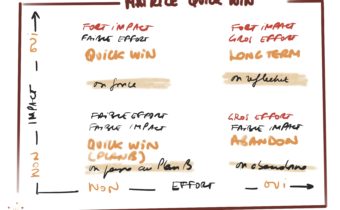 MATRICE QUICK WIN
OUI
FORT IMPACT
FAIBLE EFFORT
QUICK WIN
on fonce
FORT IMPACT
GROS EFFORT
LONG TERM
on réfléchit
IMPACT
FAIBLE EFFORT
FAIBLE IMPACT
QUICK WIN
(PLAN B)
on passe au Plan B
GROS EFFORT
FAIBLE IMPACT
ABANDON
on abandonne
NON
NON
EFFORT
OUI